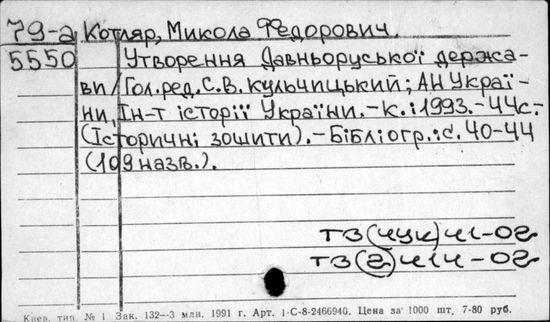 79-а Котляр, Микола Федорович.
5550 Утворення Давньоруської держа-
ви / Гол. ред. С.В. Кульчицький; АН Украї-
ни, Ін-т історії України. - К.: 1993. - 44с. -
(Історичні зошити). - Бібліогр.: с. 40-44
(109 назв.).
ТЗ(4УК)41-02
ТЗ(2)414-02
Киев. тип. № 1 Зак. 132—3 млн. 1991 г. Арт. 1-С-8-2466940. Цена за 1000 шт. 7-80 руб.